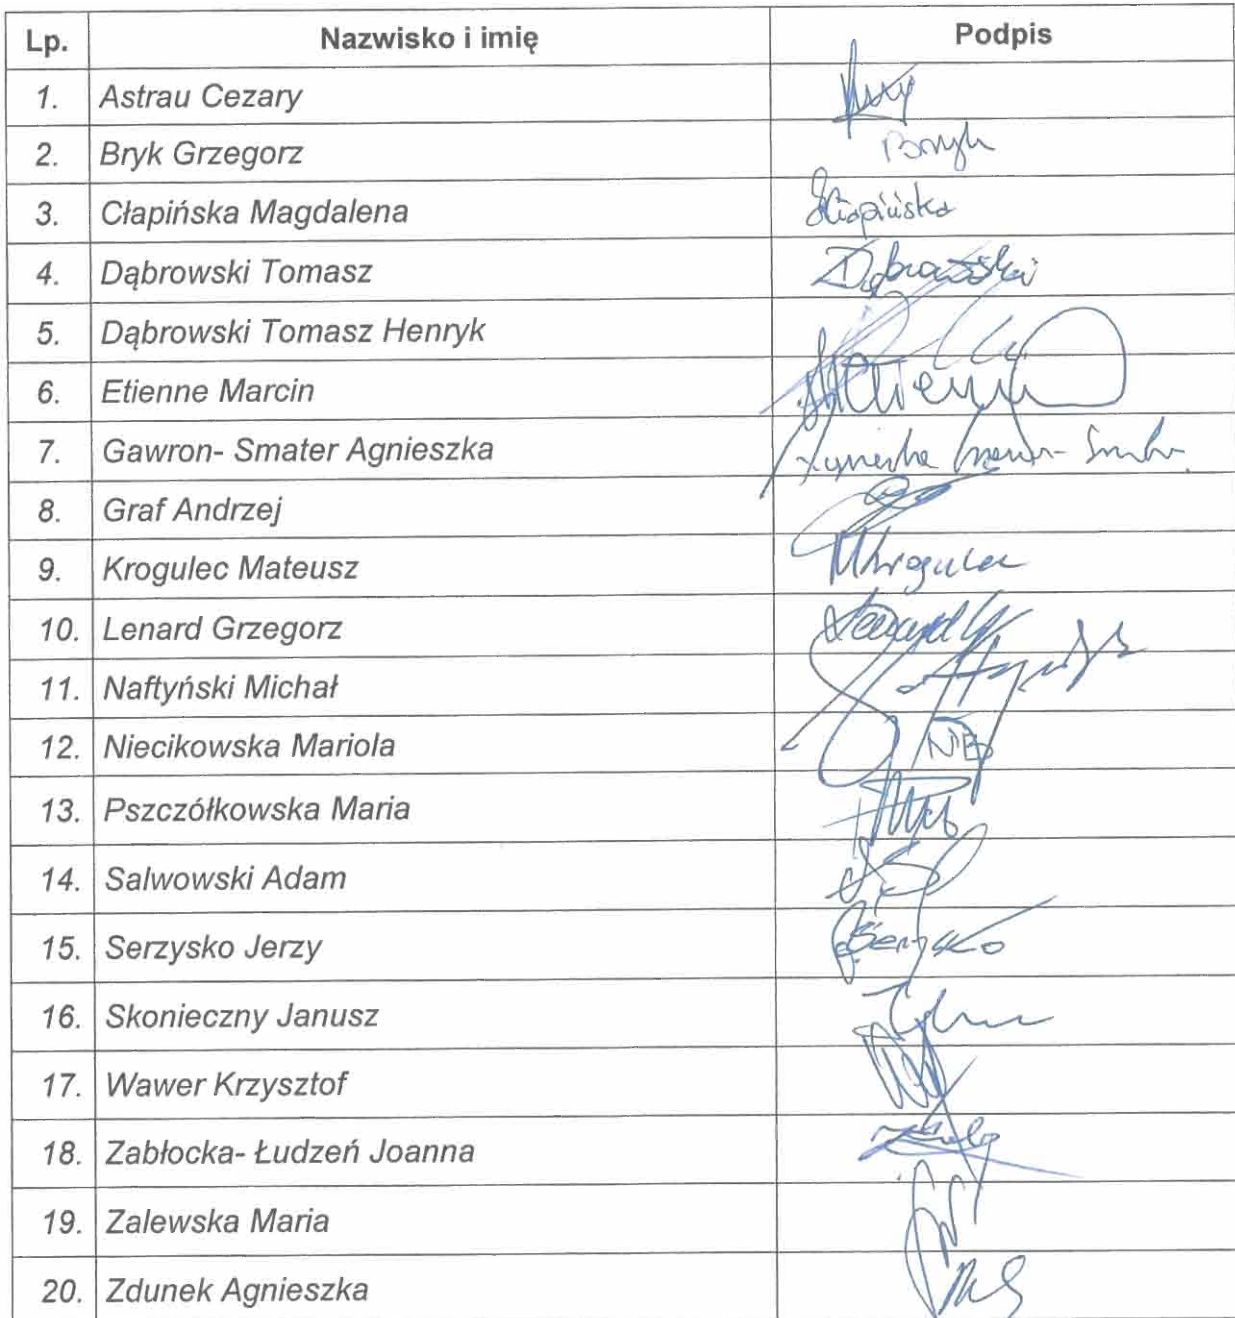 Lp. Nazwisko i imię Podpis
1. Astrau Cezary
2. Bryk Grzegorz Bryk
3. Cłapińska Magdalena Cłapińska
4. Dąbrowski Tomasz Dąbrowski
5. Dąbrowski Tomasz Henryk
6. Etienne Marcin
7. Gawron- Smater Agnieszka Agnieszka Gawron- Smater
8. Graf Andrzej
9. Krogulec Mateusz MKrogulec
10. Lenard Grzegorz Lenard
11. Naftyński Michał
12. Niecikowska Mariola
13. Pszczółkowska Maria
14. Salwowski Adam
15. Serzysko Jerzy Serzysko
16. Skonieczny Janusz
17. Wawer Krzysztof
18. Zabłocka- Łudzeń Joanna
19. Zalewska Maria
20. Zdunek Agnieszka